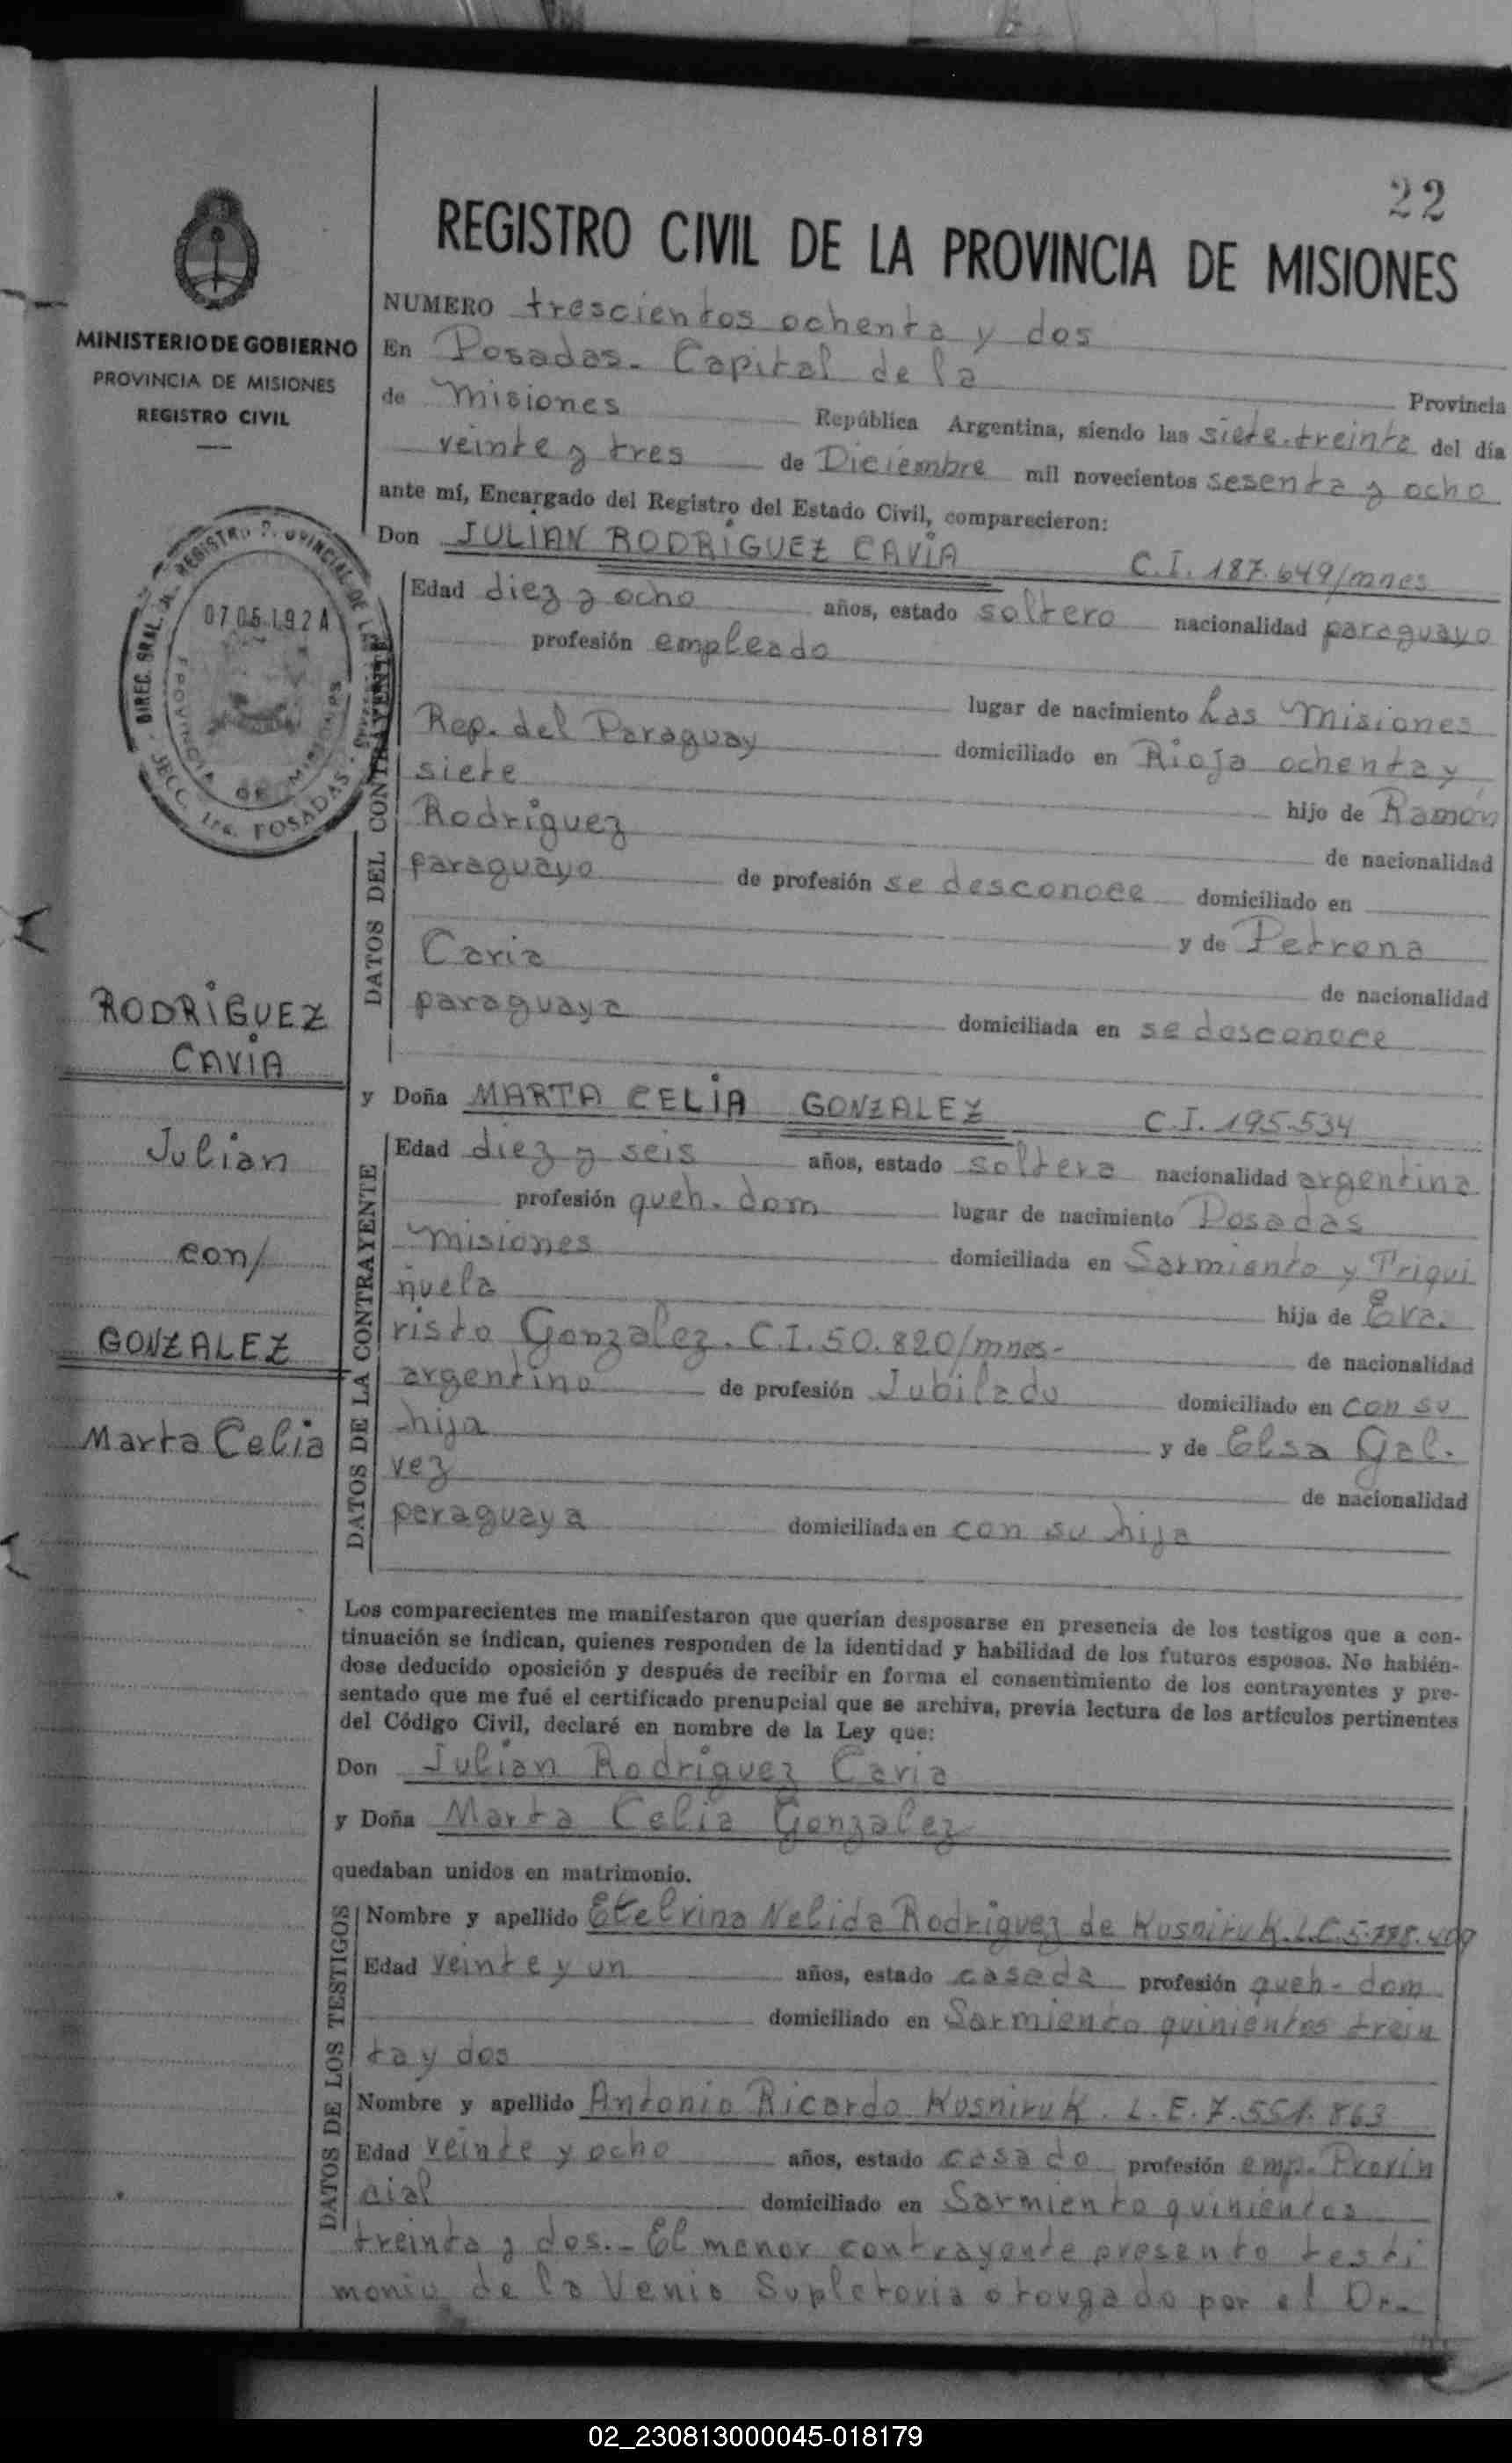 22
REGISTRO CIVIL DE LA PROVINCIA DE MISIONES
MINISTERIO DE GOBIERNO
PROVINCIA DE MISIONES
REGISTRO CIVIL
NUMERO trescientos ochenta y dos
En Posadas. Capital de la Provincia
de Misiones República Argentina, siendo las siete.treinta del día
veinte y tres de Diciembre mil novecientos sesenta y ocho
ante mí, Encargado del Registro del Estado Civil, comparecieron:
Don JULIAN RODRIGUEZ CAVIA C.I. 187.649/mnes
DATOS DEL CONTRAYENTE
Edad diez y ocho años, estado soltero nacionalidad paraguayo
profesión empleado
lugar de nacimiento Las Misiones
Rep. del Paraguay domiciliado en Rioja ochenta y
siete hijo de Ramón
Rodriguez de nacionalidad
paraguayo de profesión se desconoce domiciliado en
y de Petrona
Cavia de nacionalidad
paraguaya domiciliada en se desconoce
y Doña MARTA CELIA GONZALEZ C.I. 195.534
DATOS DE LA CONTRAYENTE
Edad diez y seis años, estado soltera nacionalidad argentina
profesión queh. dom lugar de nacimiento Posadas
Misiones domiciliada en Sarmiento y Triqui
ñuela hija de Eva.
risto Gonzalez. C.I. 50.820/mnes-
de nacionalidad
argentino de profesión Jubilado domiciliado en con su
hija y de Elsa Gal.
vez de nacionalidad
paraguaya domiciliada en con su hija
Los comparecientes me manifestaron que querían desposarse en presencia de los testigos que a con-
tinuación se indican, quienes responden de la identidad y habilidad de los futuros esposos. No habién-
dose deducido oposición y después de recibir en forma el consentimiento de los contrayentes y pre-
sentado que me fué el certificado prenupcial que se archiva, previa lectura de los artículos pertinentes
del Código Civil, declaré en nombre de la Ley que:
Don Julian Rodriguez Cavia
y Doña Marta Celia Gonzalez
quedaban unidos en matrimonio.
DATOS DE LOS TESTIGOS
Nombre y apellido Etelvina Nelida Rodriguez de Kusniruk. L.C.
Edad veinte y un años, estado casada profesión queh- dom
domiciliado en Sarmiento quinientos trein
ta y dos
Nombre y apellido Antonio Ricardo Kusniruk. L.E. 7.551.863
Edad veinte y ocho años, estado casado profesión emp. Provin
cial domiciliado en Sarmiento quinientos
treinta y dos.- El menor contrayente presento testi
monio de la Venia Supletoria otorgado por el Dr.-
RODRIGUEZ
CAVIA
Julian
con/
GONZALEZ
Marta Celia
02_230813000045-018179